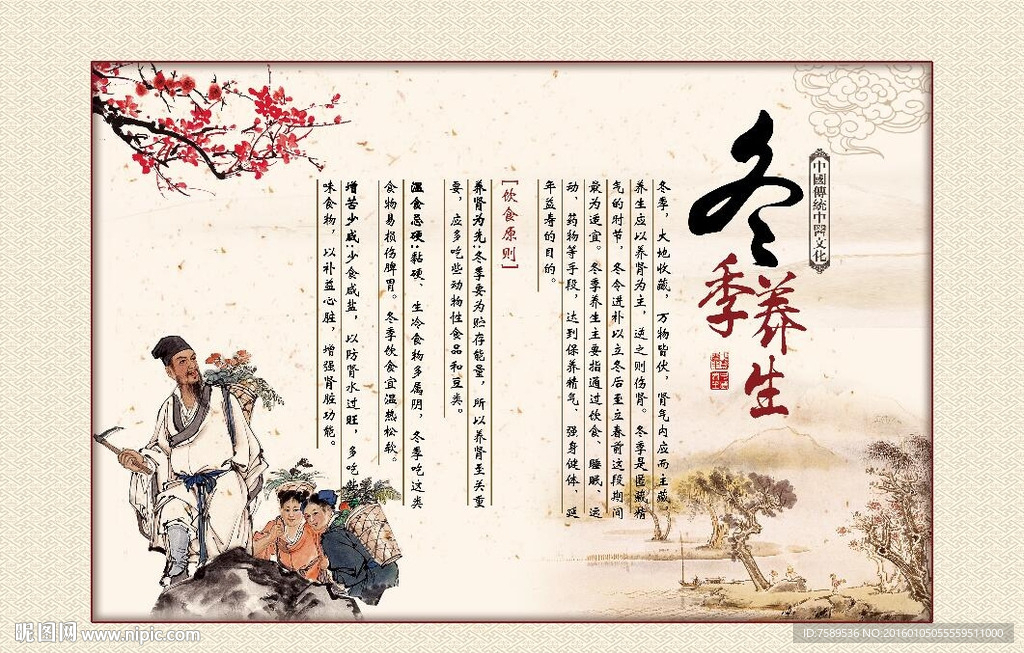 中國傳統中醫文化
冬季养生
冬季，大地收藏，万物皆伏，肾气内应而主藏，
养生应以养肾为主，逆之则伤肾。冬季是匿藏精
气的时节，冬令进补以立冬后至立春前这段期间
最为适宜。冬季养生主要指通过饮食、睡眠、运
动、药物等手段，达到保养精气、强身健体、延
年益寿的目的。
[饮食原则]
养肾为先：冬季要为贮存能量，所以养肾至关重
要，应多吃些动物性食品和豆类。
温食忌硬：黏硬、生冷食物多属阴，冬季吃这类
食物易损伤脾胃。冬季饮食宜温热松软。
增苦少咸：少食咸盐，以防肾水过旺，多吃些
味食物，以补益心脏，增强肾脏功能。
昵图网 www.nipic.com
ID:7589536 NO:20160105055559511000